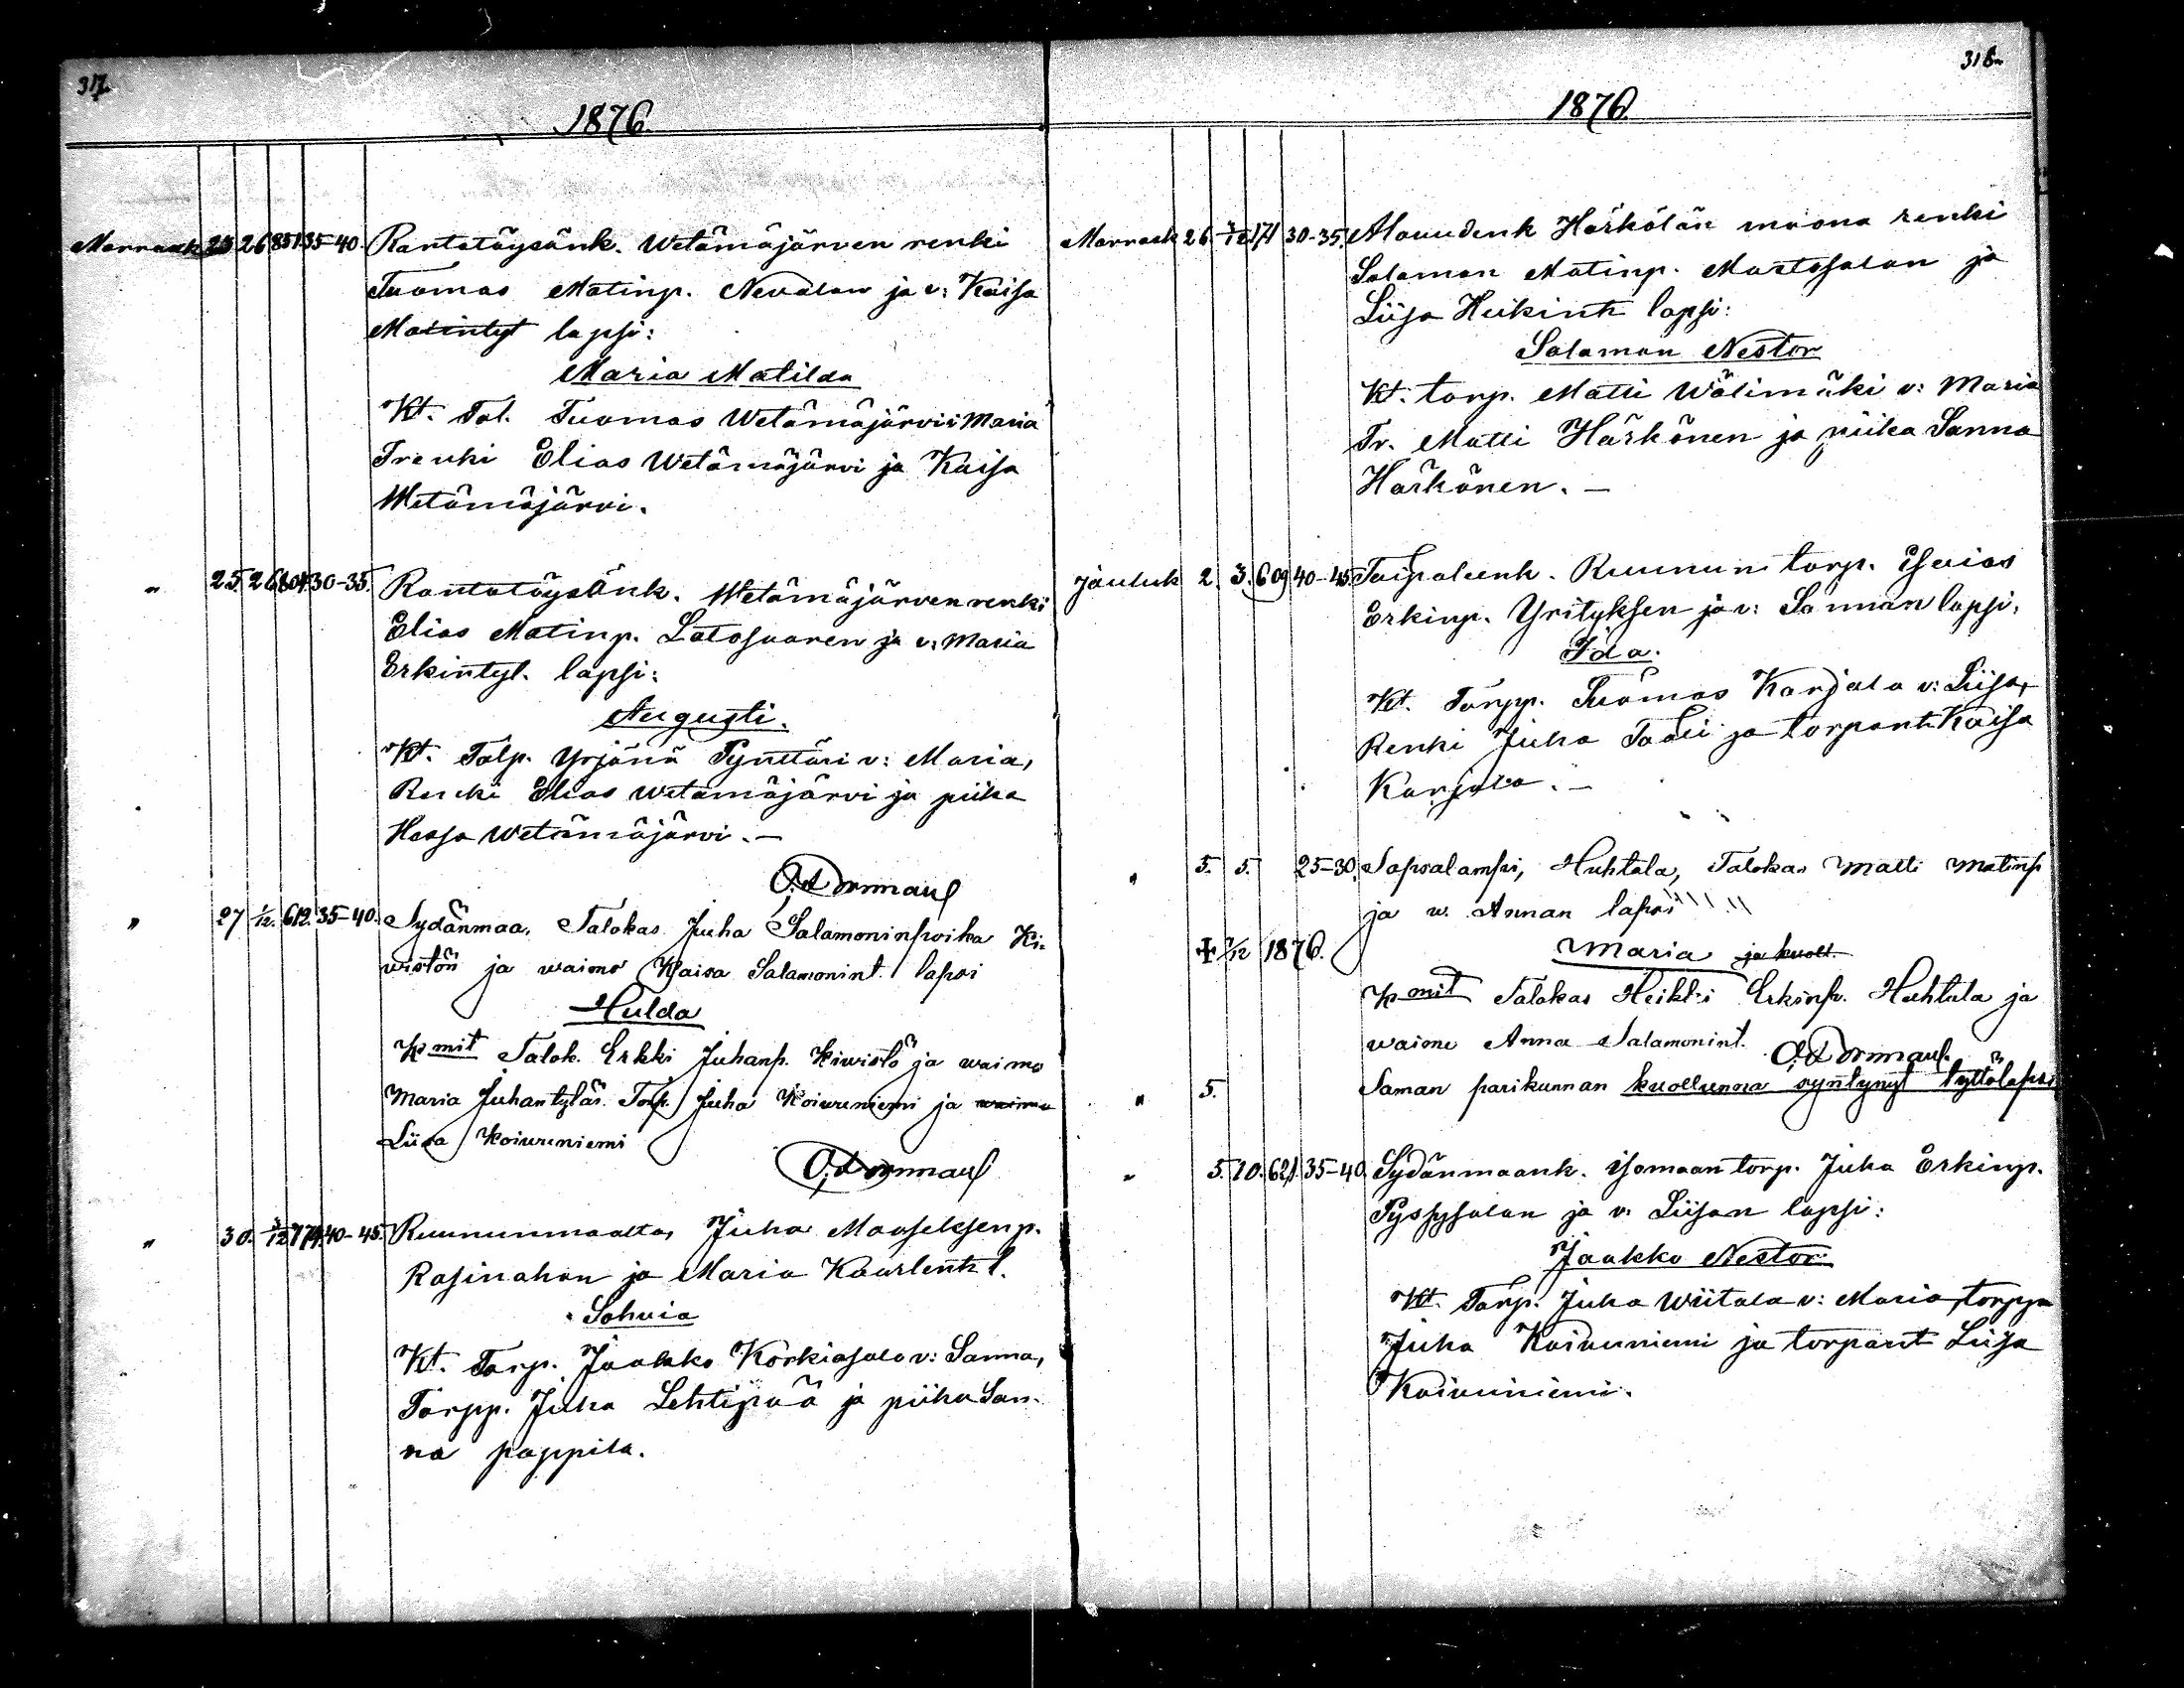 317.
1876.
Marrask 25 26 851 35-40. Rantatöysänk. Wetämäjärven renki
Tuomas Matinp. Nevalan ja v: Kaisa
Matintyt lapsi:
Maria Matilda
Kt. Tal. Tuomas Wetämäjärvi v: Maria
Trenki Elias Wetämäjärvi ja Kaisa
Wetämäjärvi.
" 25. 26 804 30-35. Rantatöysänk. Wetämäjärven renki
Elias Matinp. Latosaaren ja v: Maria
Erkintyt. lapsi:
Augusti.
Kt. Talp. Yrjänä Pynttäri v: Maria,
Renki Elias Wetämäjärvi ja piika
Wetämäjärvi.—
O. Dormaul
" 27 1/12. 612. 35-40. Sydänmaa, Talokas Juha Salamoninpoika Ki-
wistön ja waimo Kaisa Salamonint. lapsi
Hulda
Kmit Talok. Erkki Juhanp. Kiwistö ja waimo
Maria Juhantytär. Torp. Juha Koivuniemi ja waimo
Liisa Koivuniemi
" 30. 3/12 774 40-45. Ruununmaalta, Juha Mooseksenp.
Rasinahon ja Maria Kaarlent l.
Sohvia
Kt. Torp. Jaakko Korkiasalo v: Sanna,
Torpp. Juha Lehtipää ja piika San-
na pappila.
318.
1876.
Marrask 26 3/12 171 30-35. Alavudenk Härkölän maana renki
Salamon Matinp. Mastosalon ja
Liisa Heikint lapsi:
Salamon Nestor
Kt. torp. Matti Wälimäki v: Maria
Tr. Matti Härkönen ja piika Sanna
Härkönen.—
Jouluk 2 3. 609 40-45 Taipaleenk. Ruunun torp. Esaias
Erkinp. Yrityksen ja v: Sannan lapsi,
Ida.
Kt. Torpp. Tuomas Karjala v: Liisa,
Renki Juha Taali ja torpant. Kaisa
Karjala.—
" 5. 5. 25-30. Sapsalampi, Huhtala, Talokas Matti Matinp
ja w. Annan lapsi
+ 7/12 1876. Maria ja kuoll.
Kmit Talokas Heikki Erkinp. Huhtala ja
waimo Anna Salamonint.
" 5. Saman parikunnan kuollunna syntynyt tyttölapsi
" 5. 10. 621. 35-40. Sydänmaank. isomaan torp. Juha Erkinp.
Pyssysalon ja v: Liisan lapsi:
Jaakko Nestor
Kt. Torp. Juha Wiitala v: Maria, torppa
Juha Koivuniemi ja torpant Liisa
Koivuniemi.